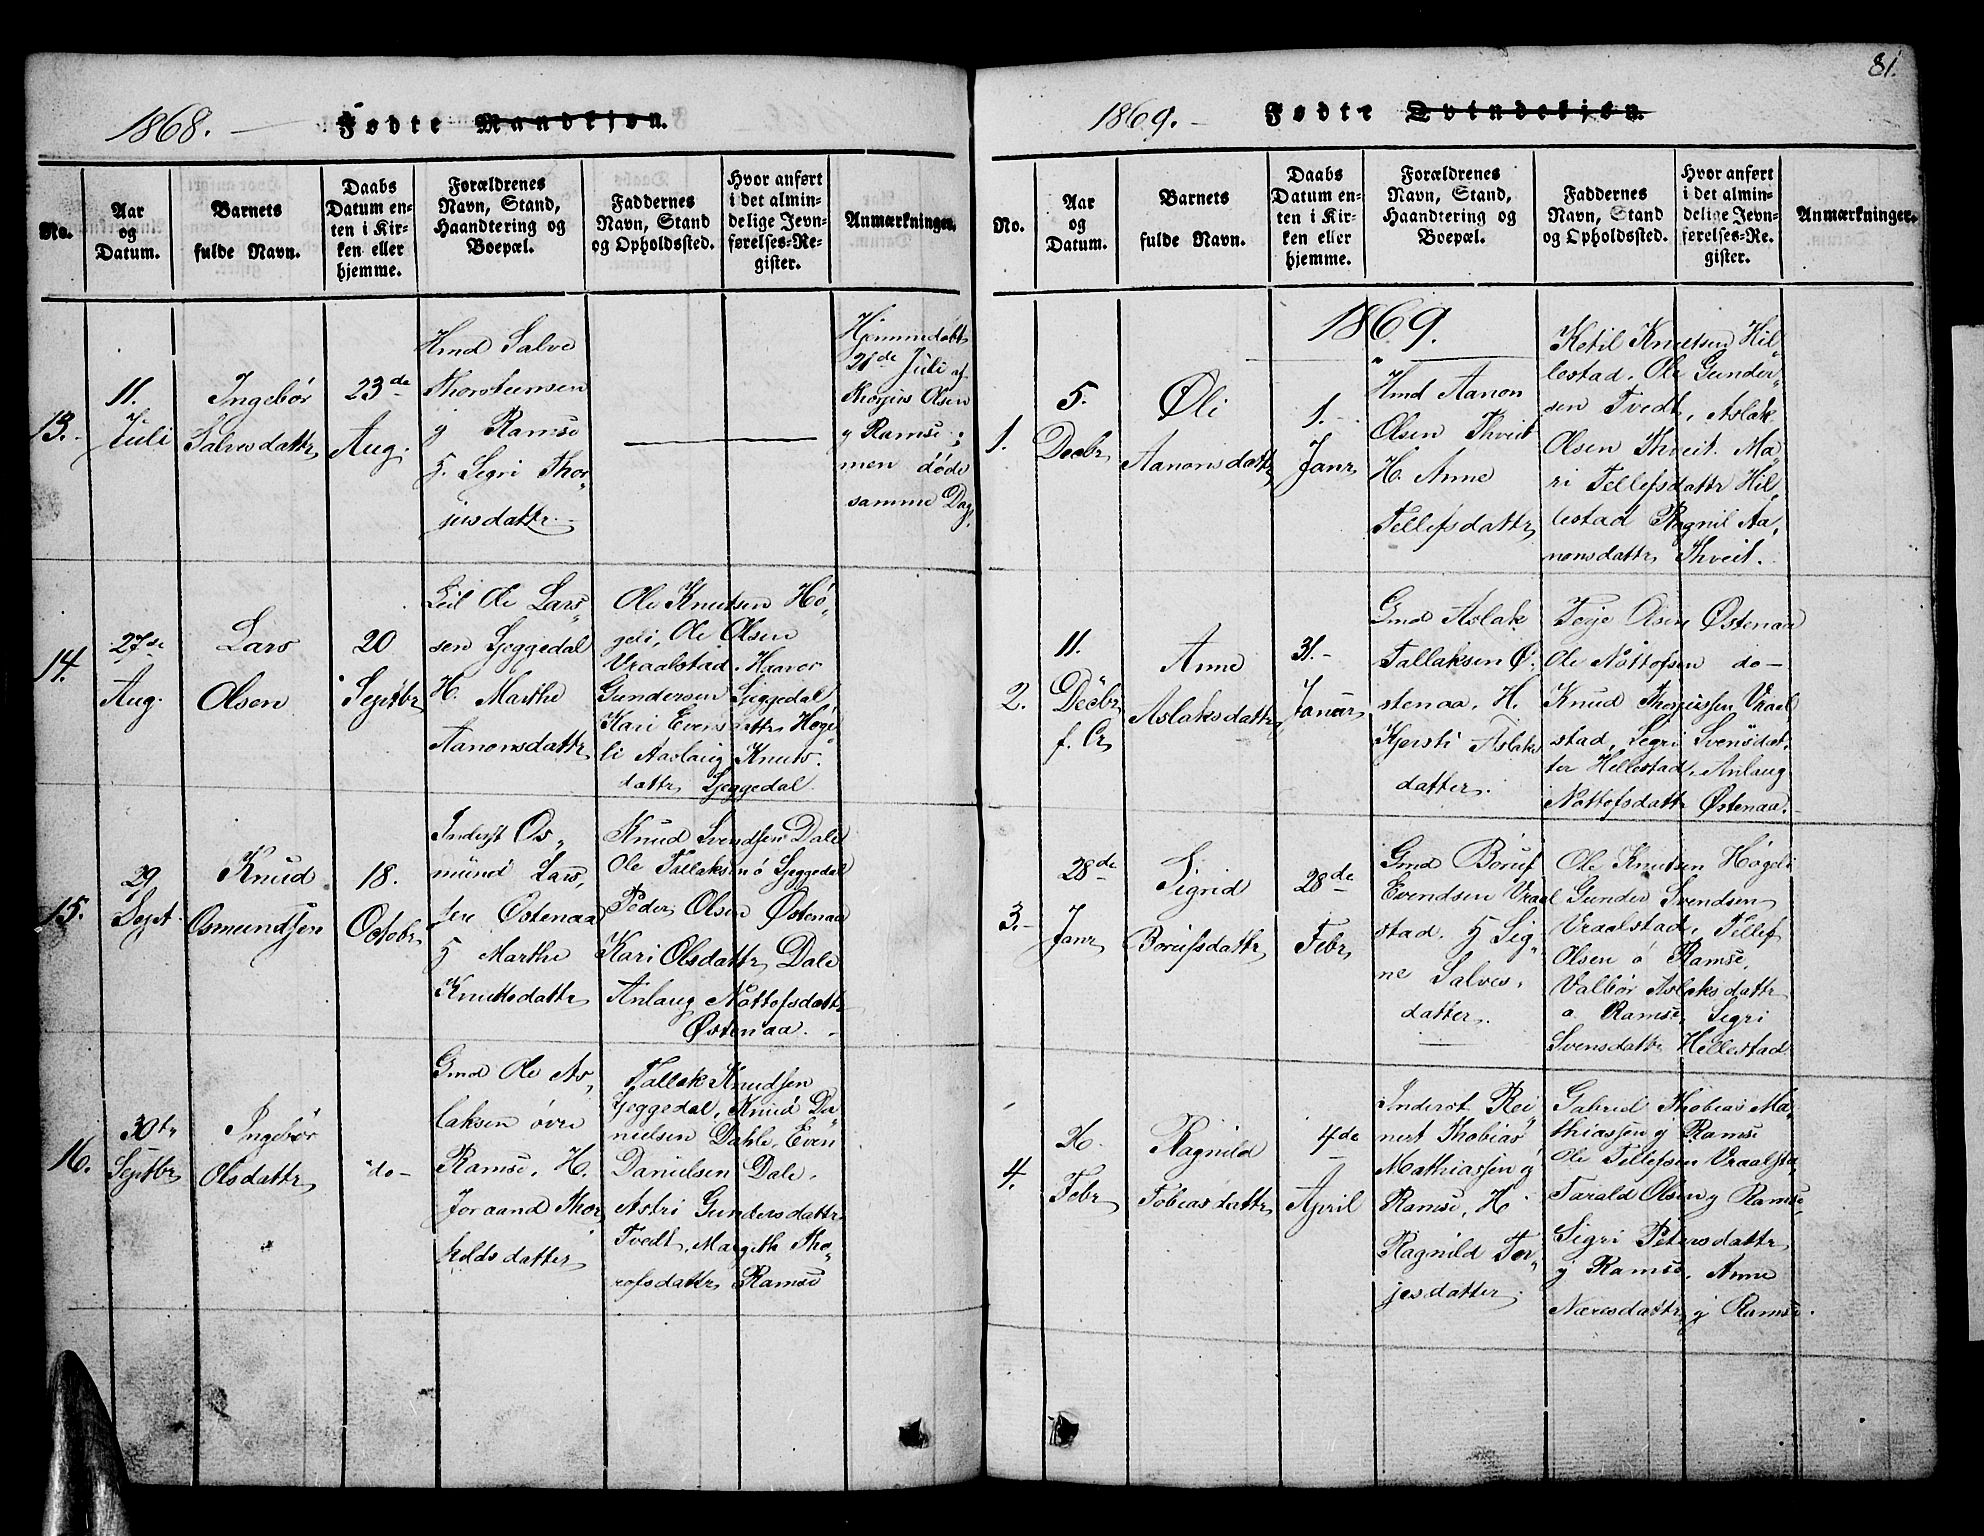 1868. Fødte Mandkjøn.
No.
Aar
og
Datum.
Barnets
fulde Navn.
Daabs
Datum en-
ten i Kir-
ken eller
hjemme.
Forældrenes
Navn, Stand,
Haandtering og
Boepæl.
Faddernes
Navn, Stand
og Opholdssted.
Hvor anført
i det almin-
delige Jevn-
førelses-Re-
gister.
Anmærkninger.
13.
11.
Juli
Ingebør
Salvesdattr
23de
Aug.
Hmd Salve
Thorsteinsen
y Ramse
H. Segri Thor-
jusdattr.
Hjemmedøbt
21de Juli af
Thorjus Olsen
y Ramse;
men døde
samme Dag.
14.
27de
Aug.
Lars
Olsen
20
Septbr
Leil Ole Lars-
sen Ljeggedal
H. Marthe
Aanonsdattr
Ole Knutsen Hø-
geli, Ole Olsen
Vraalstad. Haavor
Gundersen Ljeggedal
Kari Evensdattr Høge
li Aaslaug Knuts.
dattr Ljeggedal.
15.
29
Sept.
Knud
Osmundsen
18.
Octobr
Inderst Os-
mund Lars-
sen Østenaa
H Marthe
Knutsdattr
Knud Svendsen Dale
Ole Tallaksen ø Ljeggedal
Peder Olsen Østenaa
Kari Olsdattr Dale
Anlaug Nottofsdattr
Østenaa.
16.
30te
Septbr
Ingebør
Olsdattr
do
Gmd Ole As-
laksen øvre
Ramse. H.
Joraand Thor
kildsdatter
Tallak Knudsen
Ljeggedal, Knud Da-
nielsen Dahle, Even
Danielsen Dale.
Astri Gundersdattr
Tvedt, Margith Tho-
rofsdattr Ramse
81.
1869. Fødte Qvindekjøn.
No.
Aar
og
Datum.
Barnets
fulde Navn.
Daabs
Datum en-
ten i Kir-
ken eller
hjemme.
Forældrenes
Navn, Stand,
Haandtering og
Boepæl.
Faddernes
Navn, Stand
og Opholdssted.
Hvor anført
i det almin-
delige Jevn-
førelses-Re.
gister.
Anmærkninger.
1869.
1.
5.
Decbr
Øli
Aanonsdattr
1.
Janr
Hmd Aanon
Olsen Thveit
H. Anne
Tellefsdattr
Ketil Knutsen Hil-
lestad. Ole Gunder-
sen Tvedt, Aslak
Olsen Thveit. Ma-
ri Tellefsdattr Hil-
lestad Ragnil Aa-
nonsdattr Thveit.
2.
11.
Decbr
f. Ar
Anne
Aslaksdattr
31.
Januar
Gmd Aslak
Tallaksen Ø-
stenaa. H.
Kjersti Aslaks
datter.
Terje Olsen Østenaa
Ole Nottofsen do
Knud Thorjussen Vraal
stad, Segri Svensdat-
ter Hillestad. Anlaug
Nottofsdattr Østenaa.
3.
28de
Janr
Sigrid
Borufsdattr
28de
Febr
Gmd Boruf
Evendsen Vraal
stad. H Sig-
ne Salves-
datter.
Ole Knutsen Høgeli
Gunder Svendsen
Vraalstad, Tellef
Olsen ø Ramse,
Valbør Aslaksdattr
ø Ramse, Segri
Svensdattr Hillestad
4.
Febr
Ragnild
Tobiasdattr
4de
April
Inderst Rei-
nert Thobias
Mathiassen y
Ramse, H.
Ragnild Ter-
jesdatter.
Gabriel Thobias Ma-
thiassen y Ramse
Ole Tellefsen Vraalsta
Tarald Olsen y Ramse
Sigri Petersdattr
y Ramse, Anne
Neresdattr y Ramse.